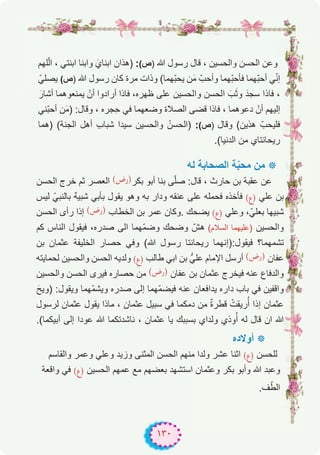 وعن الحسن والحسين ، قال رسول الله (ص): (هذان ابنايَ وابنا ابنتي ، الَّلهم
إنّي أحبّهما فأحبّهما وأحبّ مَن يحبّهما) وذات مرة كان رسول الله (ص) يصليّ
، فاذا سجد وثب الحسن والحسين على ظهره، فاذا أرادوا أنْ يمنعوهما أشار
إليهم أنْ دعوهما ، فاذا قضى الصلاة وضعهما في حجره ، وقال: (مَن أحبّني
فليحبّ هذين) وقال (ص): (الحسنُ والحسين سيدا شباب أهل الجنة) (هما
ريحانتاي من الدنيا).
* من محبّة الصحابة له
عن عقبة بن حارث ، قال: صلّى بنا أبو بكر(رض) العصر ثم خرج الحسن
بن علي (ع) فأخذه فحمله على عنقه ودار به وهو يقول بأبي شبيهٌ بالنبيّ ليس
شبيها بعليّ، وعلي (ع) يضحك .وكان عمر بن الخطاب (رض) إذا رأى الحسن
والحسين (عليهما السلام) هشّ وضحك وضمّهما الى صدره، فيقول الناس كم
تشمهما؟ فيقول:(إنهما ريحانتا رسول الله) وفي حصار الخليفة عثمان بن
عفان (رض) أرسل الإمام عليُّ بن ابي طالب (ع) ولديه الحسن والحسين لحمايته
والدفاع عنه فيخرج عثمان بن عفان (رض) من حصاره فيرى الحسن والحسين
واقفين في باب داره يدافعان عنه فيضمّهما إلى صدره ويشمّهما ويقول: (ويحَ
عثمان إذا أُريقتْ قطرةٌ من دمكما في سبيل عثمان ، ماذا يقول عثمان لرسول
الله ان قال له أُوذي ولداي بسببك يا عثمان ، ناشدتكما الله عودا إلى أبيكما).
* أولاده
للحسن (ع) اثنا عشر ولدا منهم الحسن المثنى وزيد وعلي وعمر والقاسم
وعبد الله وأبو بكر وعثمان استشهد بعضهم مع عمهم الحسين (ع) في واقعة
الطّف.
١٣٠